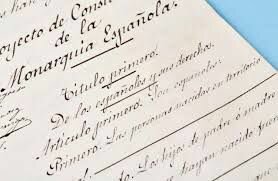 se han
Proyecto de Consti
de la
Monarquía Española.
Título primero.
De los españoles y sus derechos.
Artículo primero. Son españoles.
Primero. Las personas nacidas en territorio
Los hijos de padre ó madre
hayan nacido fuer